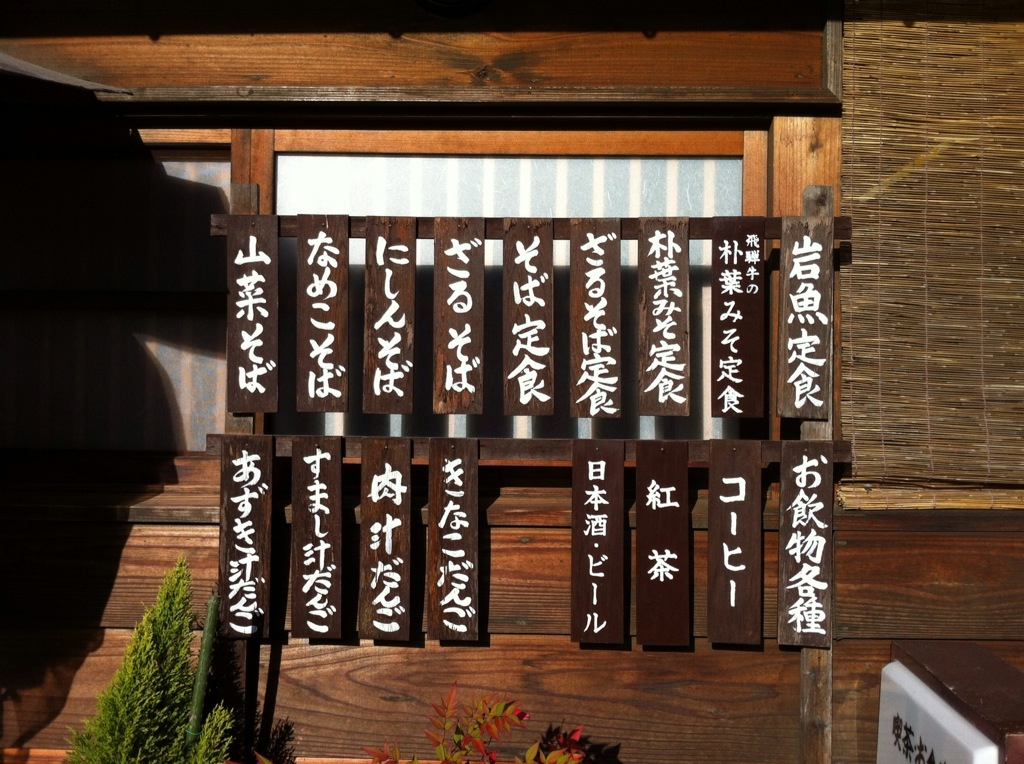 岩魚定食
飛騨牛の
朴葉みそ定食
朴葉みそ定食
ざるそば定食
そば定食
ざるそば
にしんそば
なめこそば
山菜そば
お飲物各種
コーヒー
紅茶
日本酒・ビール
きなこだんご
肉汁だんご
すまし汁だんご
あずき汁だんご
喫茶・お食